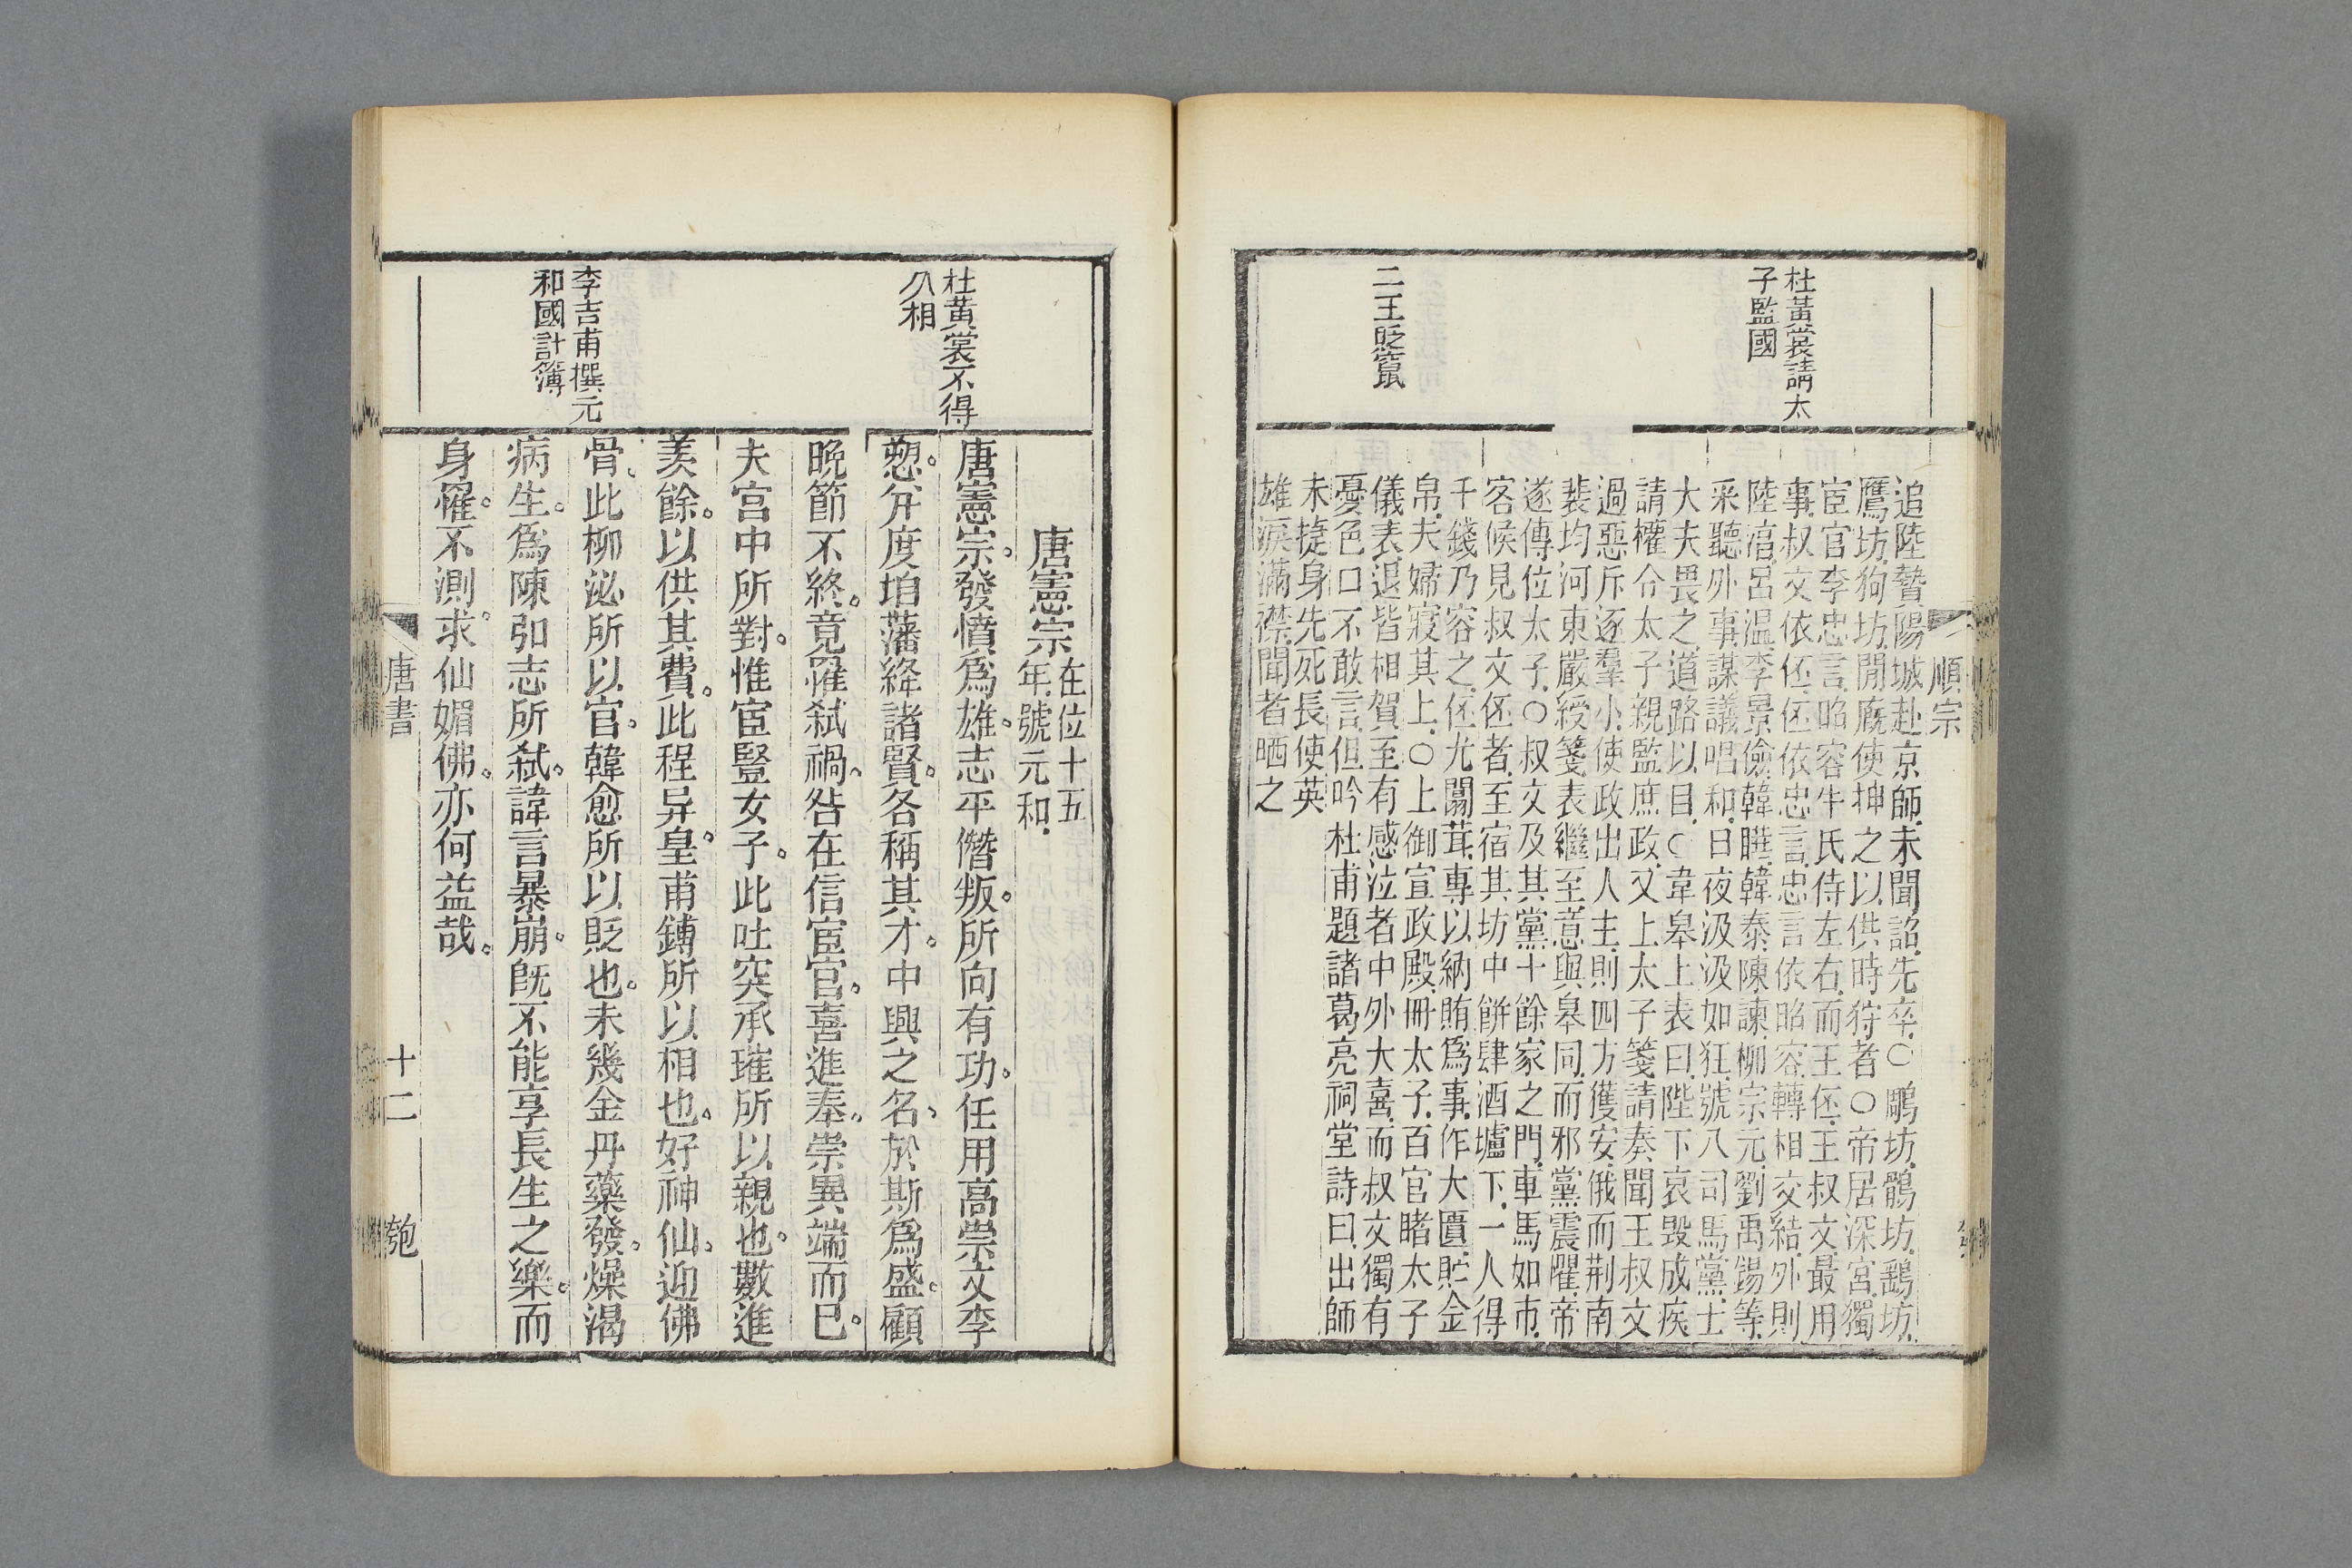 順宗
杜黃裳請太
子監國
二王貶竄
追陸贄陽城赴京師未聞詔先卒○鵰坊鶻坊鷂坊
鷹坊狗坊閒廐使押之以供時狩者○帝居深宮獨
宦官李忠言昭容牛氏侍左右而王伾王叔文最用
事叔文依伾伾依忠言忠言依昭容轉相交結外則
陸淳呂温李景儉韓曄韓泰陳諫柳宗元劉禹錫等
采聽外事謀議唱和日夜汲汲如狂號八司馬黨士
大夫畏之道路以目○韋皋上表曰陛下哀毀成疾
請權令太子親監庶政又上太子箋請奏聞王叔文
過惡斥逐羣小使政出人主則四方獲安俄而荆南
裴均河東嚴綬箋表繼至意與皋同而邪黨震懼帝
遂傳位太子○叔文及其黨十餘家之門車馬如市
客候見叔文伾者至宿其坊中餅肆酒壚下一人得
千錢乃容之伾尤闒茸專以納賄爲事作大匱貯金
帛夫婦寢其上○上御宣政殿冊太子百官睹太子
儀表退皆相賀至有感泣者中外大喜而叔文獨有
憂色口不敢言但吟杜甫題諸葛亮祠堂詩曰出師
未捷身先死長使英
雄淚滿襟聞者晒之
杜黃裳不得
久相
李吉甫撰元
和國計簿
唐憲宗在位十五
年號元和
唐憲宗發憤爲雄志平僭叛所向有功任用高崇文李
愬弁度垍藩絳諸賢各稱其才中興之名於斯爲盛顧
晚節不終竟罹弒禍咎在信宦官喜進奉崇異端而已
夫宮中所對惟宦豎女子此吐突承璀所以親也數進
羨餘以供其費此程异皇甫鎛所以相也好神仙迎佛
骨此柳泌所以官韓愈所以貶也未幾金丹藥發燥渴
病生爲陳弘志所弒諱言暴崩旣不能享長生之樂而
身罹不測求仙媚佛亦何益哉
唐書
十二
匏